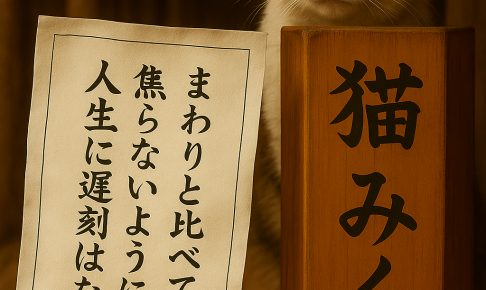 まわりと比べて
焦らないように
人生に遅刻はな
猫みく